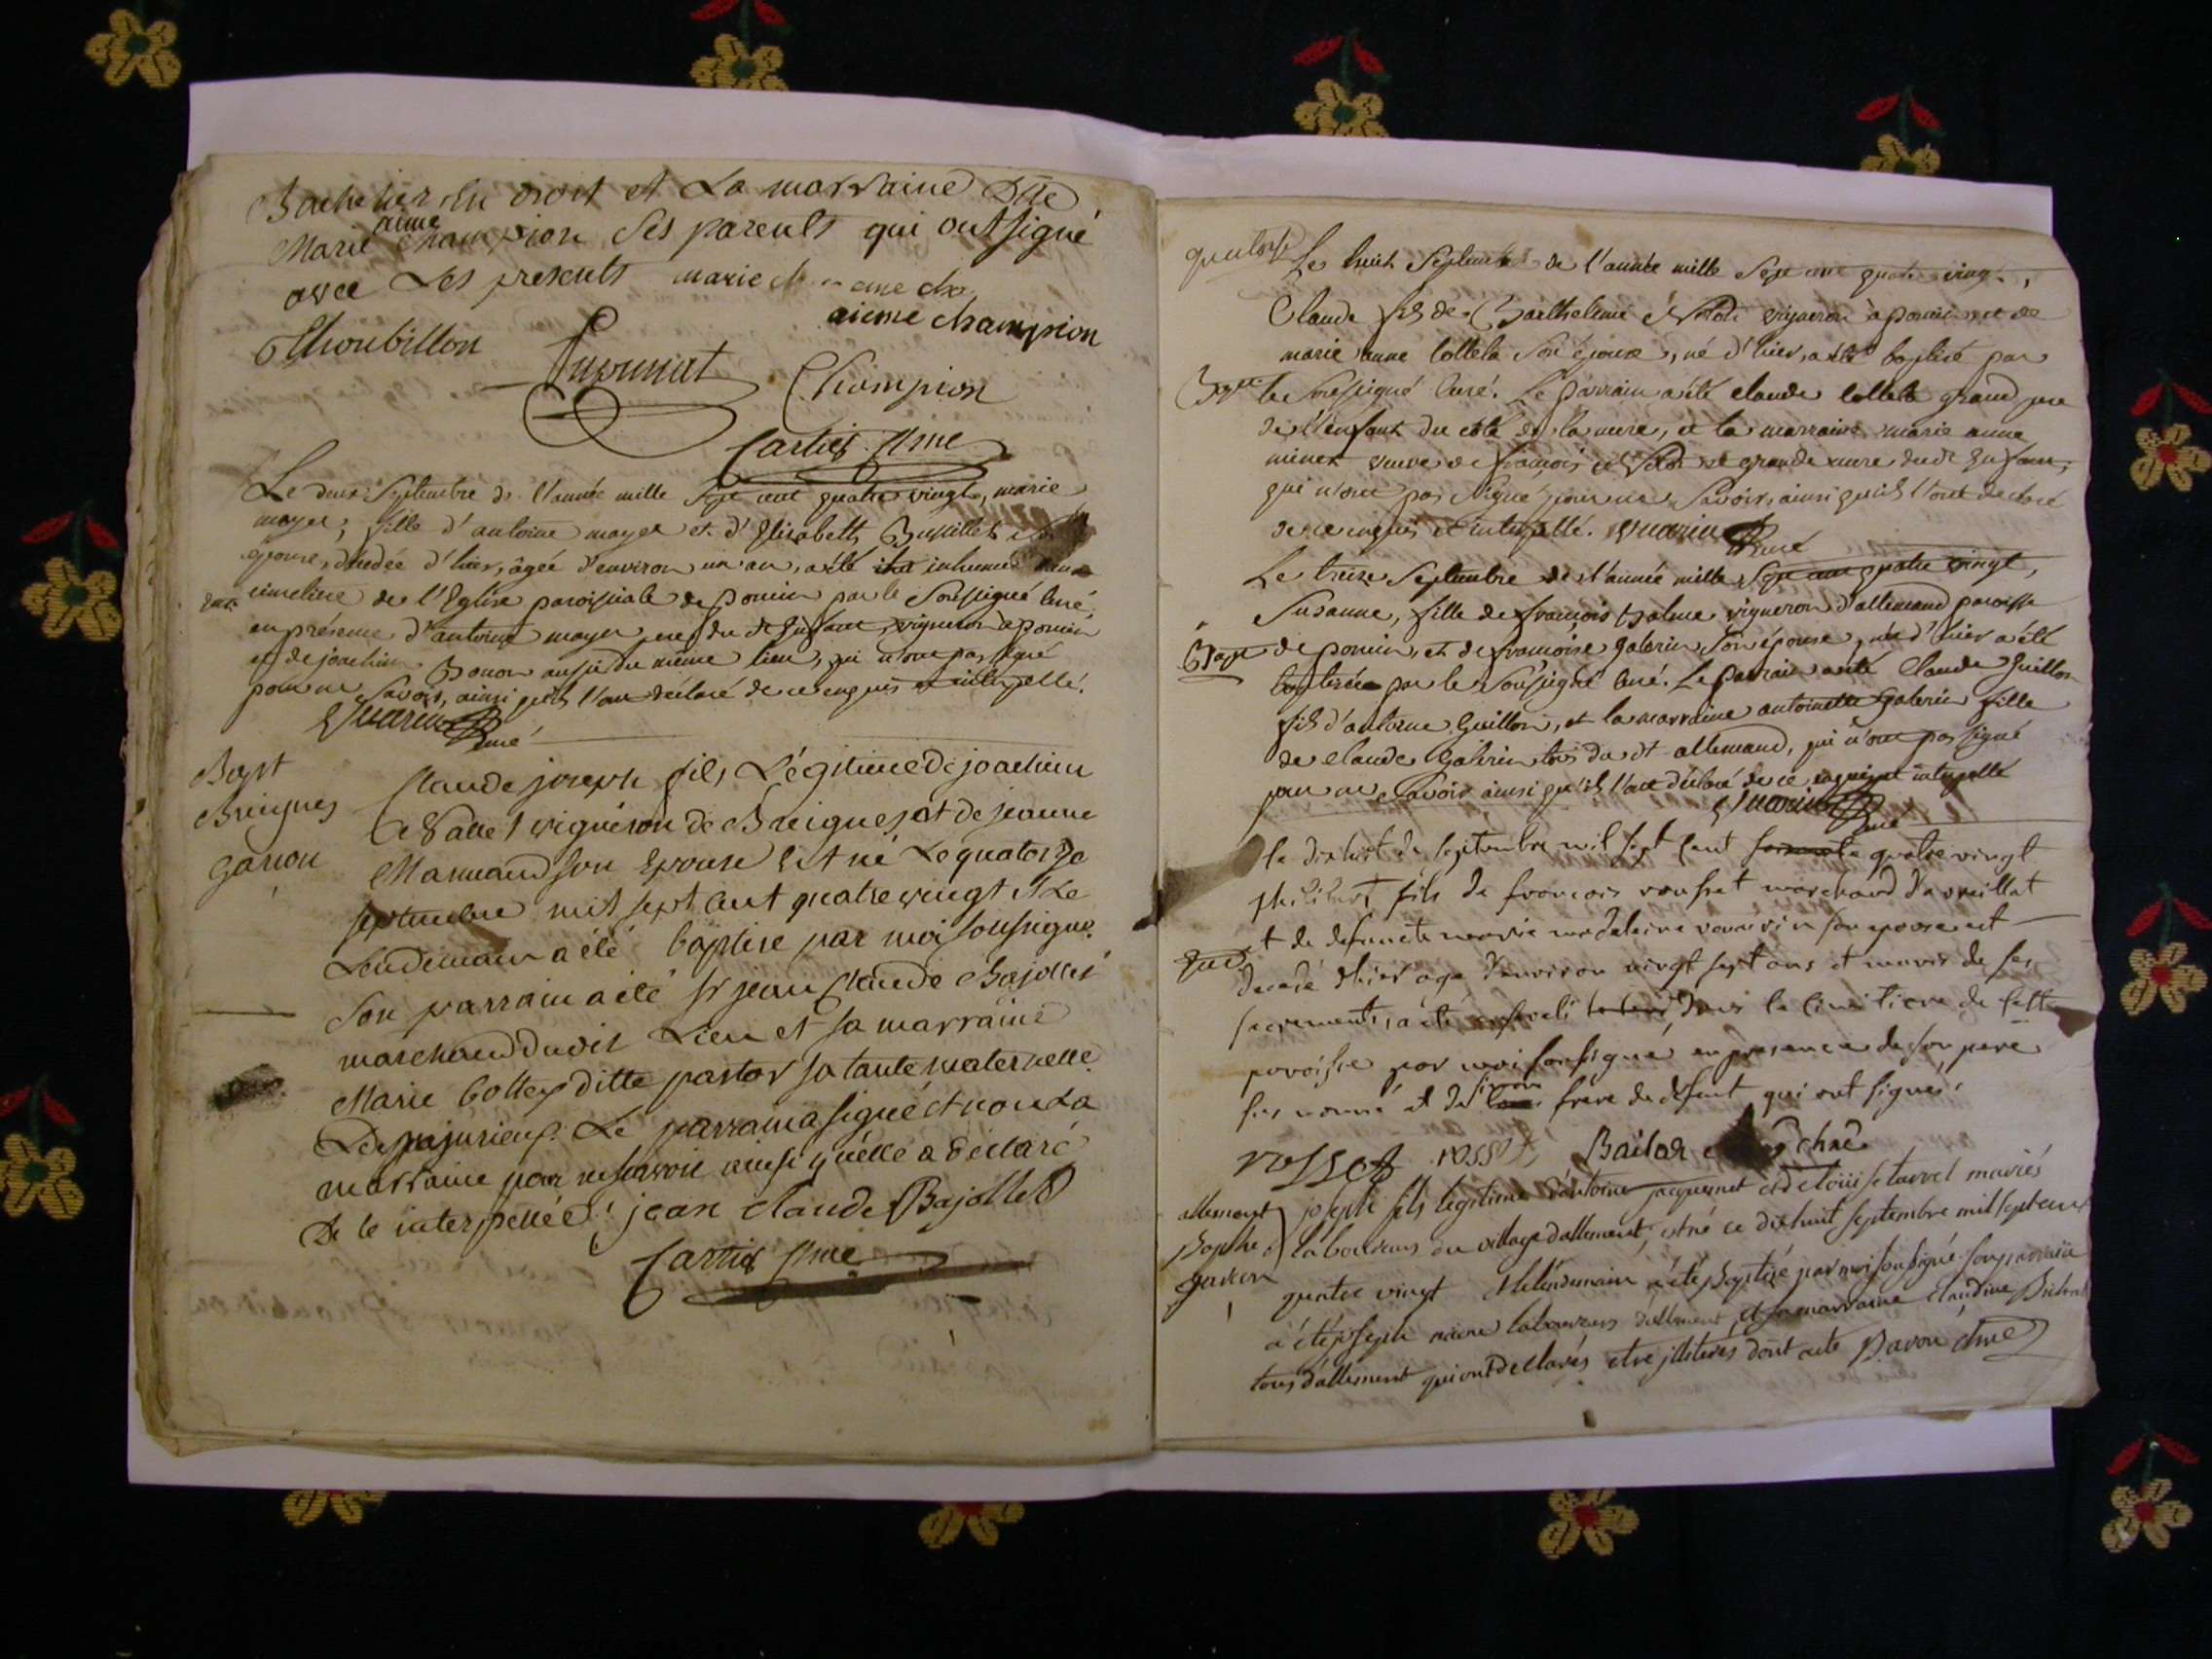 Bachelier En droit et La marraine Dlle
aimé
Marie Champion Ses parents qui ont signé
avec Les presents marie
aimé champion
Choubillon
Champion
Cartier Vme
Le deux Septembre de l'année mille Sept cent quatre vingt, marie
mayer, fille d'antoine mayer et d'Elisabeth Bussillet
épouse, décédée d'hier, âgée d'environ un an, a été inhumée
cimetiere de l'Eglise paroissiale de poncin par le Soussigné Curé
en présence d'antoine mayer pere du dt Enfant, vigneron à poncin
et de joachim Bonon aussi du même lieu, qui n'ont pas signé
pour ne Savoir, ainsi qu'ils l'ont déclaré de ce enquis et interpellé.
Curé
Bapt
Breignes
Garçon
Claude joseph fils Légitime de joachim
vigneron de Breignes et de jeanne
Marmand son Epouse Est né Le quatorze
septembre mil sept cent quatre vingt et Le
Lendemain a été baptise par moi soussigné.
Son parrain a été Sr jean Claude Bajollet
marchand dudit Lieu et sa marraine
Marie Collex ditte pastor sa tante maternelle
De jujurieux. Le parrain a signé et non La
marraine pour ne savoir ainsi qu'elle a déclaré
De ce interpellée. jean claude Bajollet
Cartier Vme
Le huit Septembre de l'année mille Sept cent quatre vingt,
Claude fils de Barthelemi vigneron à poncin et de
marie anne Collet Son épouse, né d'hier, a été baptisé par
Bapt le Soussigné Curé. Le parrain a été claude Collet grand pere
de l'enfant du côté de la mere, et la marraine marie anne
veuve de françois et grande mere dudt Enfant,
qui n'ont pas Signé pour ne Savoir, ainsi qu'ils l'ont déclaré
de ce enquis et interpellé.
Curé
Le treize Septembre de l'année mille Sept cent quatre vingt,
Susanne, fille de françois balme vigneron d'allemand paroisse
Bapt de poncin, et de françoise Galerin Son épouse, née d'hier a été
baptisée par le Soussigné Curé. Le parrain a été Claude Guillon
fils d'antoine Guillon, et la marraine antoinette Galerin fille
de claude Galerin tous du dt allemand, qui n'ont pas signé
pour ne Savoir ainsi qu'ils l'ont déclaré de ce enquis et interpellé
Curé
le dixhuit de septembre mil sept cent quatre vingt
philibert fils de françois rousset marchand
et de defuncte marie madeleine son epouse est
decedé d'hier age d'environ vingt sept ans et munis de ses
sacrements, a été enseveli dans le cimetiere de cette
paroisse par moi soussigné en presence de son pere
sus nommé et de simon frere du defunt qui ont signés.
rosset rosset
allement
Bapteme
garcon
joseph fils legitime d'antoine jacquemet et de loüise tarvel mariés
laboureurs du village dallement, est né ce dixhuit septembre mil sept cent
quatre vingt et le lendemain a été Baptizé par moi sousigné son parrain
a été joseph laboureur dallement et sa marraine claudine
tous dallement qui ont déclarés etre illiterés dont acte Pavou Vme